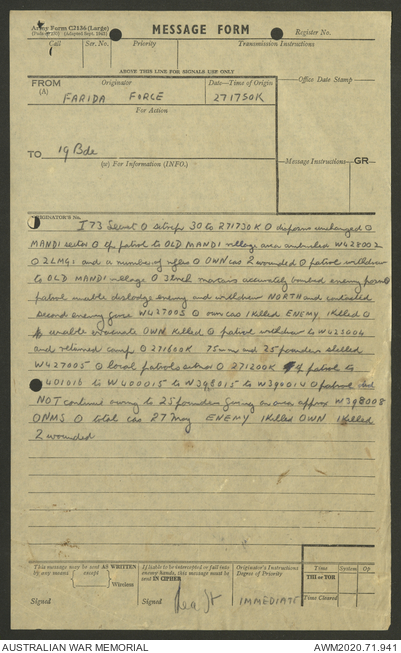 Army Form C2136 (Large)
MESSAGE FORM
Register No.
Call
Ser. No.
Priority
Transmission Instructions
ABOVE THIS LINE FOR SIGNALS USE ONLY
FROM
(A)
Originator
Date—Time of Origin
Office Date Stamp
FARIDA FORCE
271750K
For Action
TO
19 Bde
(W) For Information (INFO.)
Message Instructions
GR
ORIGINATOR'S No.
I73 Secret O sitrep 30 to 271730K O disposns unchanged O
MANDI sector O patrol to OLD MANDI village area ambushed W428002
O 2LMG1 and a number of rifles O OWN cas 2 wounded O patrol withdrew
to OLD MANDI village O 3 inch mortars accurately enemy
patrol unable dislodge enemy and withdrew NORTH and contacted
second enemy W427005 O own cas 1 killed ENEMY 1 killed O
unable evacuate OWN killed O patrol withdrew to W423004
and returned camp O 271600K 75mm and 25 pounders shelled
W427005 O local patrols O 271200K patrol to
401016 to W400015 to W396015 to W390014 O patrol did
NOT continue owing to 25 pounders firing on area approx W398008
ONMS O total cas 27 May ENEMY 1 killed OWN 1 killed
2 wounded
This message may be sent AS WRITTEN
by any means
except
Wireless
If liable to be intercepted or fall into
enemy hands, this message must be
sent IN CIPHER
Originator's Instructions
Degree of Priority
Time
System
Op
THI or TOR
Time Cleared
Signed
Signed
IMMEDIATE
AUSTRALIAN WAR MEMORIAL
AWM2020.71.941